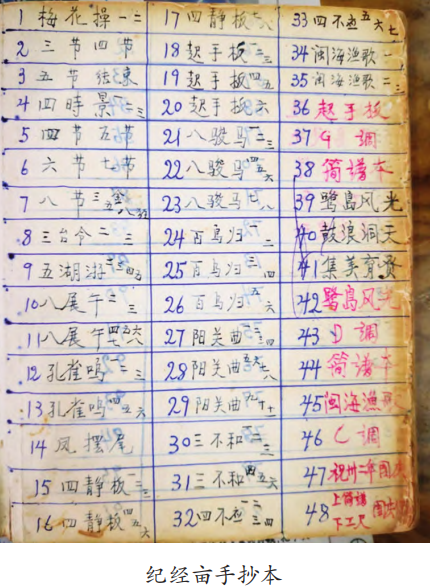 1 梅花操 一 二
2 三节 四节
3 五节 结束
4 四時景 一 二 三
5 四节 五节
6 六节 七节
7 八节
8 三台令 二 三
9 五湖游 一 二 三 四 五
10 八展午 二 三
11 八展午 四 五 六
12 孔雀鸣 一 二 三
13 孔雀鸣 四 五 六
14 凤摆尾
15 四静板 一 二 三
16 四静板 四 五 六
17 四静板 七 八
18 起手板 一 二 三
19 起手板 四 五
20 起手板 六
21 八骏马 一 二 三
22 八骏马 四 五 六
23 八骏马 七 八
24 百鸟归 一 二
25 百鸟归 三 四
26 百鸟归 五 六
27 阳关曲 一 二 三 四
28 阳关曲 五 六 七 八
29 阳关曲 九 十 十一
30 三不和 一 二 三
31 三不和 四 五 六
32 四不应 一 二 三 四
33 四不应 五 六 七
34 闽海渔歌 一
35 闽海渔歌 二 三
36 起手板
37 G 调
38 简谱本
39 鹭岛风光
40 鼓浪洞天
41 集美育贤
42 鹭岛风光
43 D 调
44 简谱本
45 闽海渔歌
46 C 调
47 二年国庆
48 上简谱 下工尺
纪经亩手抄本